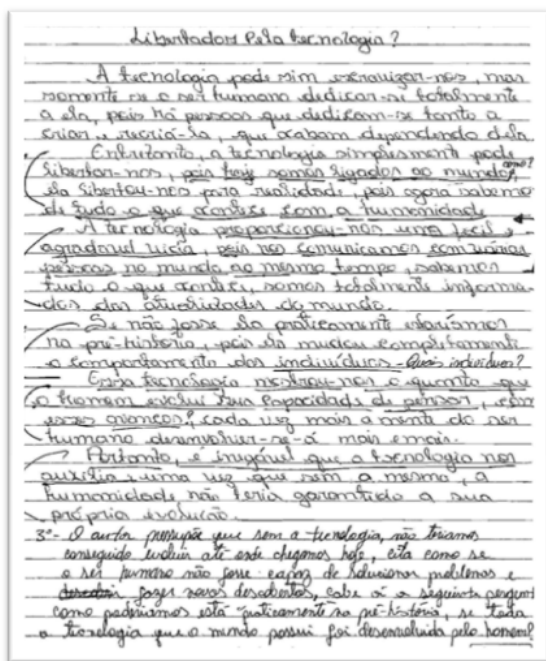 Libertador pela tecnologia?
A tecnologia pode sim escravizar-nos, mas
somente se o ser humano dedicar-se totalmente
a ela, pois há pessoas que dedicam-se tanto a
criar e recriá-la, que acabam dependendo dela.
Entretanto, a tecnologia simplesmente pode
libertar-nos, pois hoje somos ligados ao mundo, como?
ela libertou-nos para realidade, pois agora sabemos
de tudo o que acontece com a humanidade
A tecnologia proporcionou-nos uma fácil e
agradável vida, pois nos comunicamos com várias
pessoas no mundo ao mesmo tempo, sabemos
tudo o que acontece, somos totalmente informa-
dos das atualidades do mundo.
Se não fosse ela praticamente estaríamos
na pré-história, pois ela mudou completamente
o comportamento dos indivíduos - Quais indivíduos?
Essa tecnologia mostrou-nos o quanto que
o homem evolui sua capacidade de pensar, com
esses avanços?, cada vez mais a mente do ser
humano desenvolver-se-á mais e mais.
Portanto, é inegável que a tecnologia nos
auxilia, uma vez que sem a mesma, a
humanidade não teria garantido a sua
própria evolução.
3º - O autor pressupõe que sem a tecnologia, não teríamos
conseguido evoluir até onde chegamos hoje, cita como se
o ser humano não fosse capaz de solucionar problemas e
fazer novas descobertas, cabe aí a seguinte pergunta
como poderíamos está praticamente na pré-história, se toda
a tecnologia que o mundo possui foi desenvolvida pelo homem?